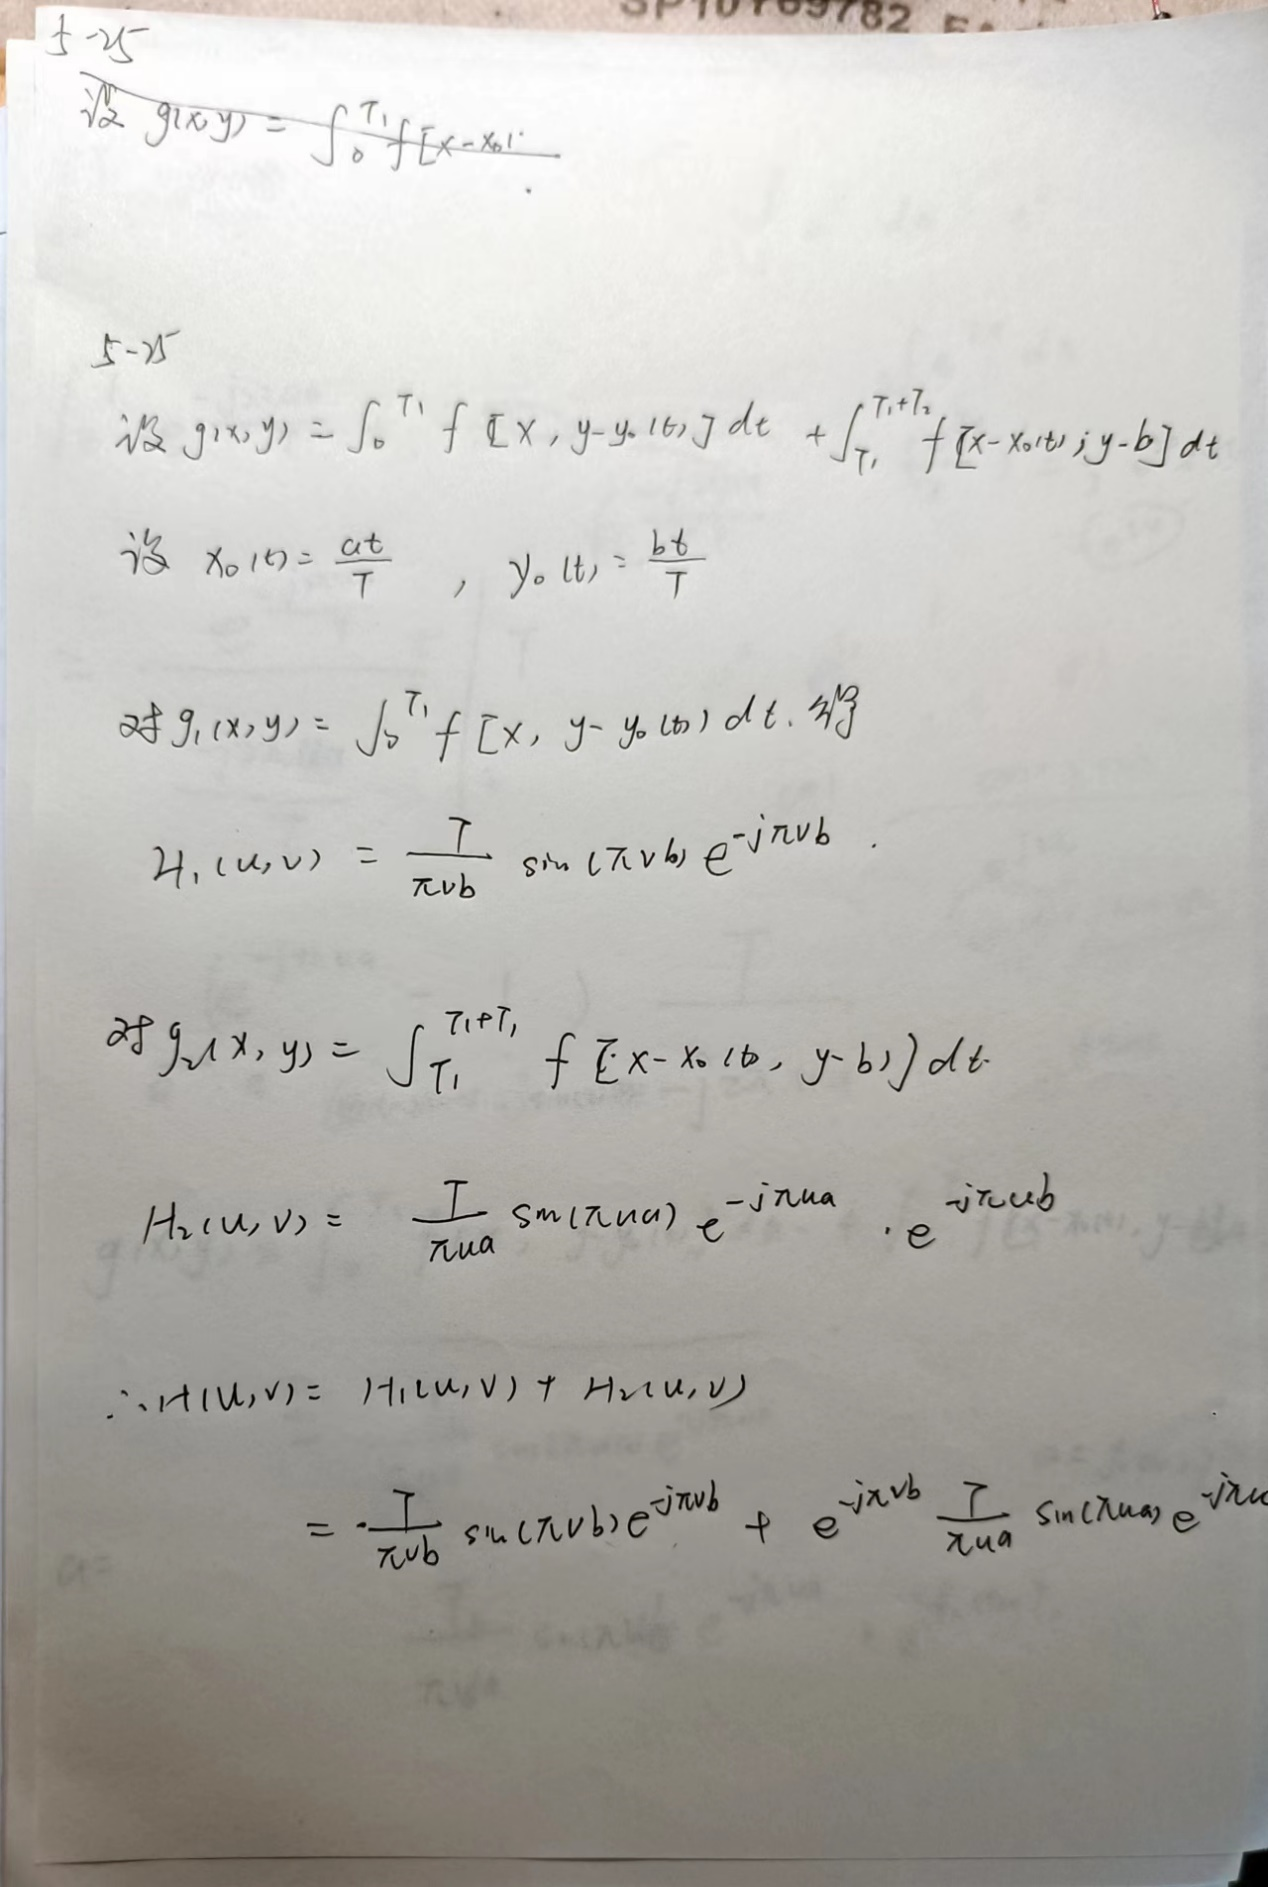 5-25
设 g(x,y) = ∫₀^T₁ f[x-x₀(
5-25
设 g(x,y) = ∫₀^T₁ f[x, y-y₀(t)] dt + ∫_T₁^T₁+T₂ f[x-x₀(t), y-b] dt
设 x₀(t) = at/T , y₀(t) = bt/T
对 g₁(x,y) = ∫₀^T₁ f[x, y-y₀(t)) dt. 得
H₁(u,v) = T/πvb sin(πvb) e^-jπvb .
对 g₂(x,y) = ∫_T₁^T₁+T₁ f[x-x₀(t), y-b)] dt.
H₂(u,v) = T/πua sin(πua) e^-jπua · e^-jπub
∴ H(u,v) = H₁(u,v) + H₂(u,v)
= T/πvb sin(πvb) e^-jπvb + e^-jπvb T/πua sin(πua) e^-jπu